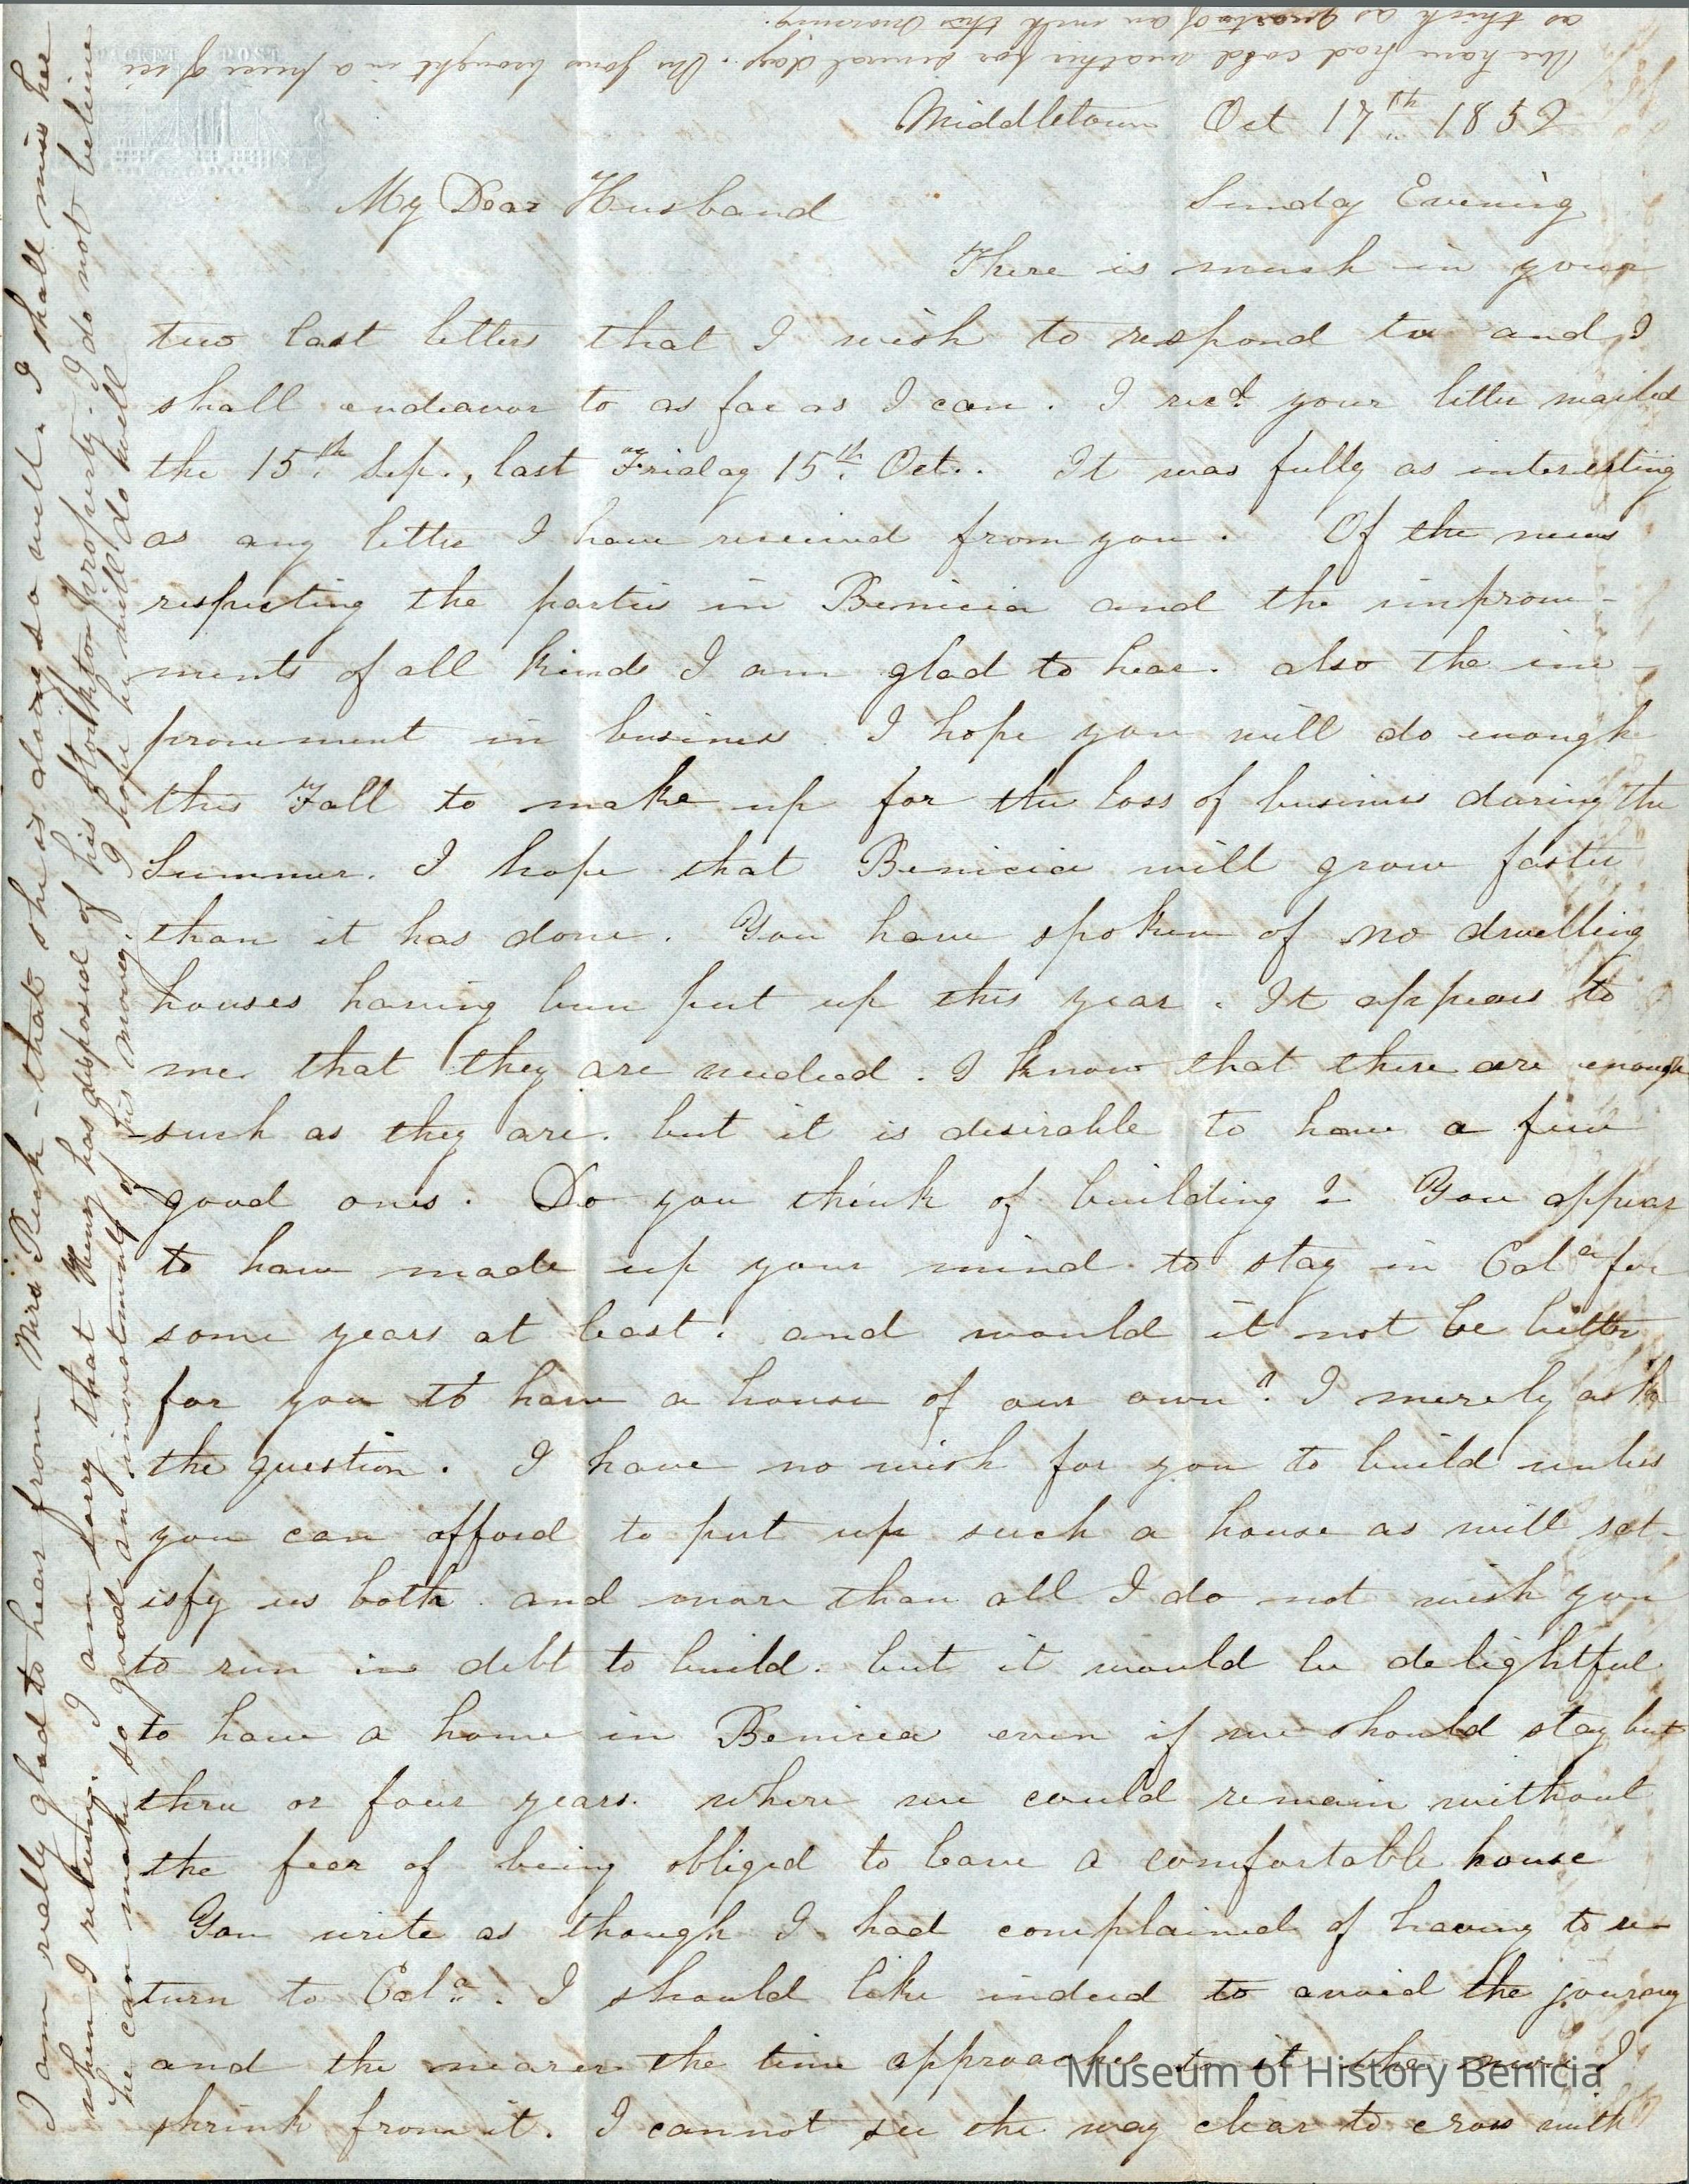 PACKET POST
We have had cold weather for several days. Mr Jones brought in a piece of ice
as thick as quarter of an inch this morning.
Middletown Oct 17th 1852
My Dear Husband Sunday Evening
There is much in your
two last letters that I wish to respond to and I
shall endeavor to as far as I can. I recd. your letter mailed
the 15th. Sep., last Friday 15th. Oct.. It was fully as interesting
as any letter I have received from you. Of the news
respecting the parties in Benicia and the improve-
ments of all kinds I am glad to hear. also the im-
provement in business. I hope you will do enough
this Fall to make up for the loss of business during the
Summer. I hope that Benicia will grow faster
than it has done. You have spoken of no dwelling
houses having been put up this year. It appears to
me that they are needed. I know that there are enough
-such as they are. but it is desirable to have a few
good ones. Do you think of building? You appear
to have made up your mind to stay in Cala for
some years at least. and would it not be better
for you to have a house of our own? I merely ask
the question. I have no wish for you to build unless
you can afford to put up such a house as will sat-
isfy us both and more than all I do not wish you
to run in debt to build. but it would be delightful
to have a home in Benicia even if we should stay but
three or four years. where we could remain without
the fear of being obliged to leave a comfortable house
You write as though I had complained of having to re-
turn to Cala. I should like indeed to avoid the journey
and the nearer the time approaches to it the more I
shrink from it. I cannot see the way clear to cross with
I am really glad to hear from Mrs Peck - that she is doing so well. I shall miss her
when I return. I am sorry that Henry has disposed of his Stockton property. I do not believe
he can make so good an investment of his money. I hope he will do well
Museum of History Benicia